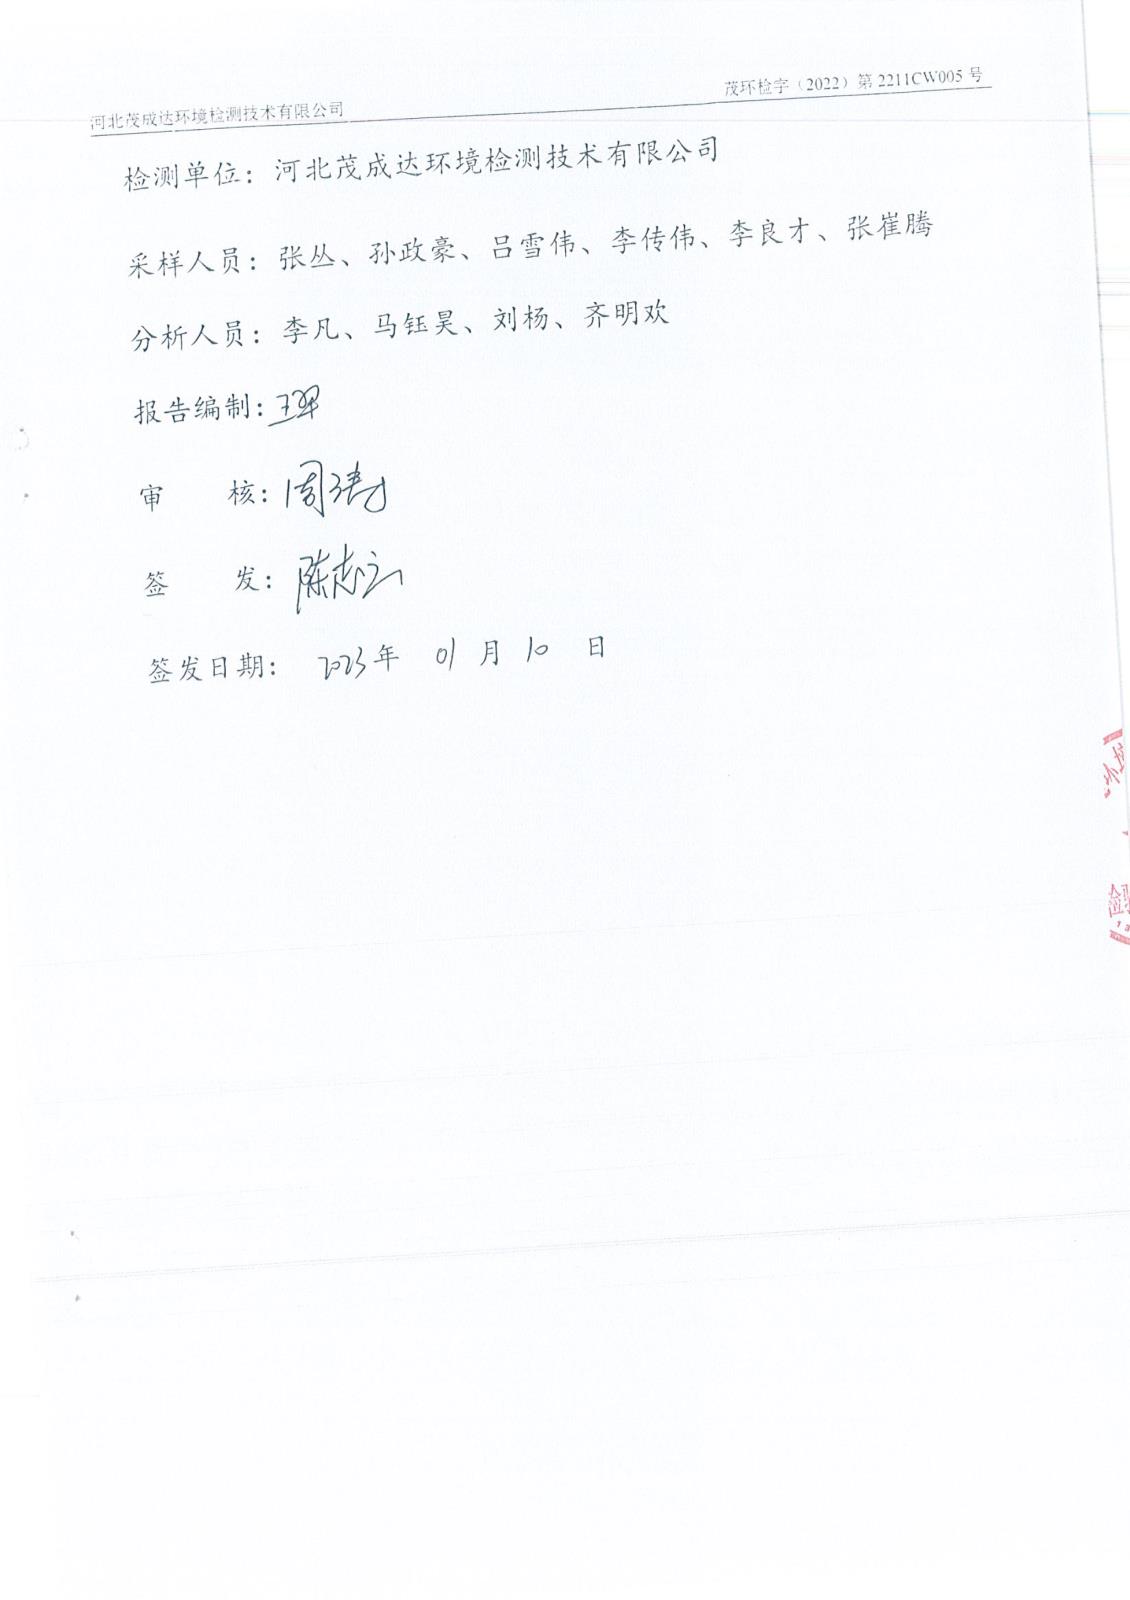 河北茂成达环境检测技术有限公司 茂环检字（2022）第2211CW005号
检测单位：河北茂成达环境检测技术有限公司
采样人员：张丛、孙政豪、吕雪伟、李传伟、李良才、张崔腾
分析人员：李凡、马钰昊、刘杨、齐明欢
报告编制：
审 核：周涛
签 发：陈志立
签发日期： 2023年 01月 10 日
检验
13